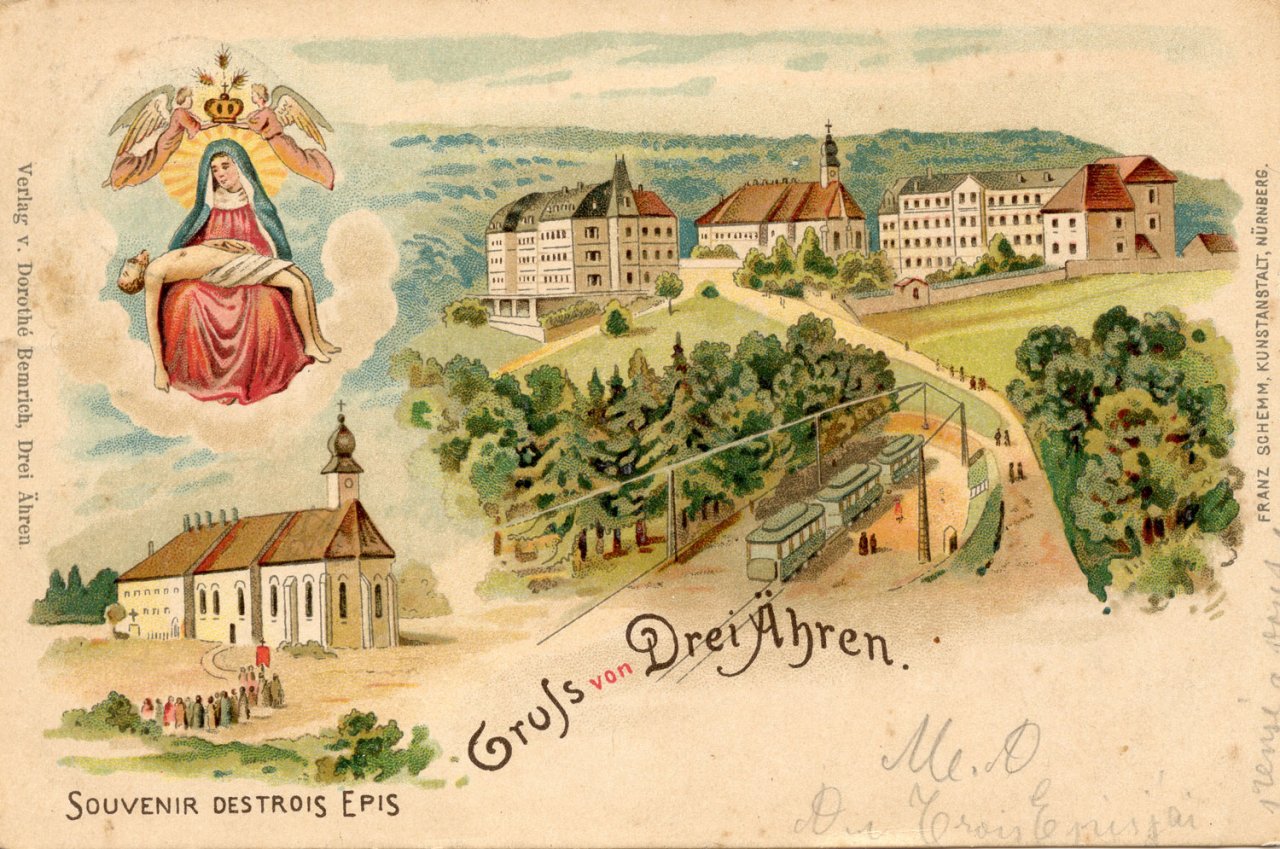 Verlag v. Dorothé Bemrich, Drei Ähren
FRANZ SCHEMM, KUNSTANSTALT, NÜRNBERG.
Gruss von Drei Ähren.
SOUVENIR DES TROIS EPIS
Me. O
Trois Epis j'ai